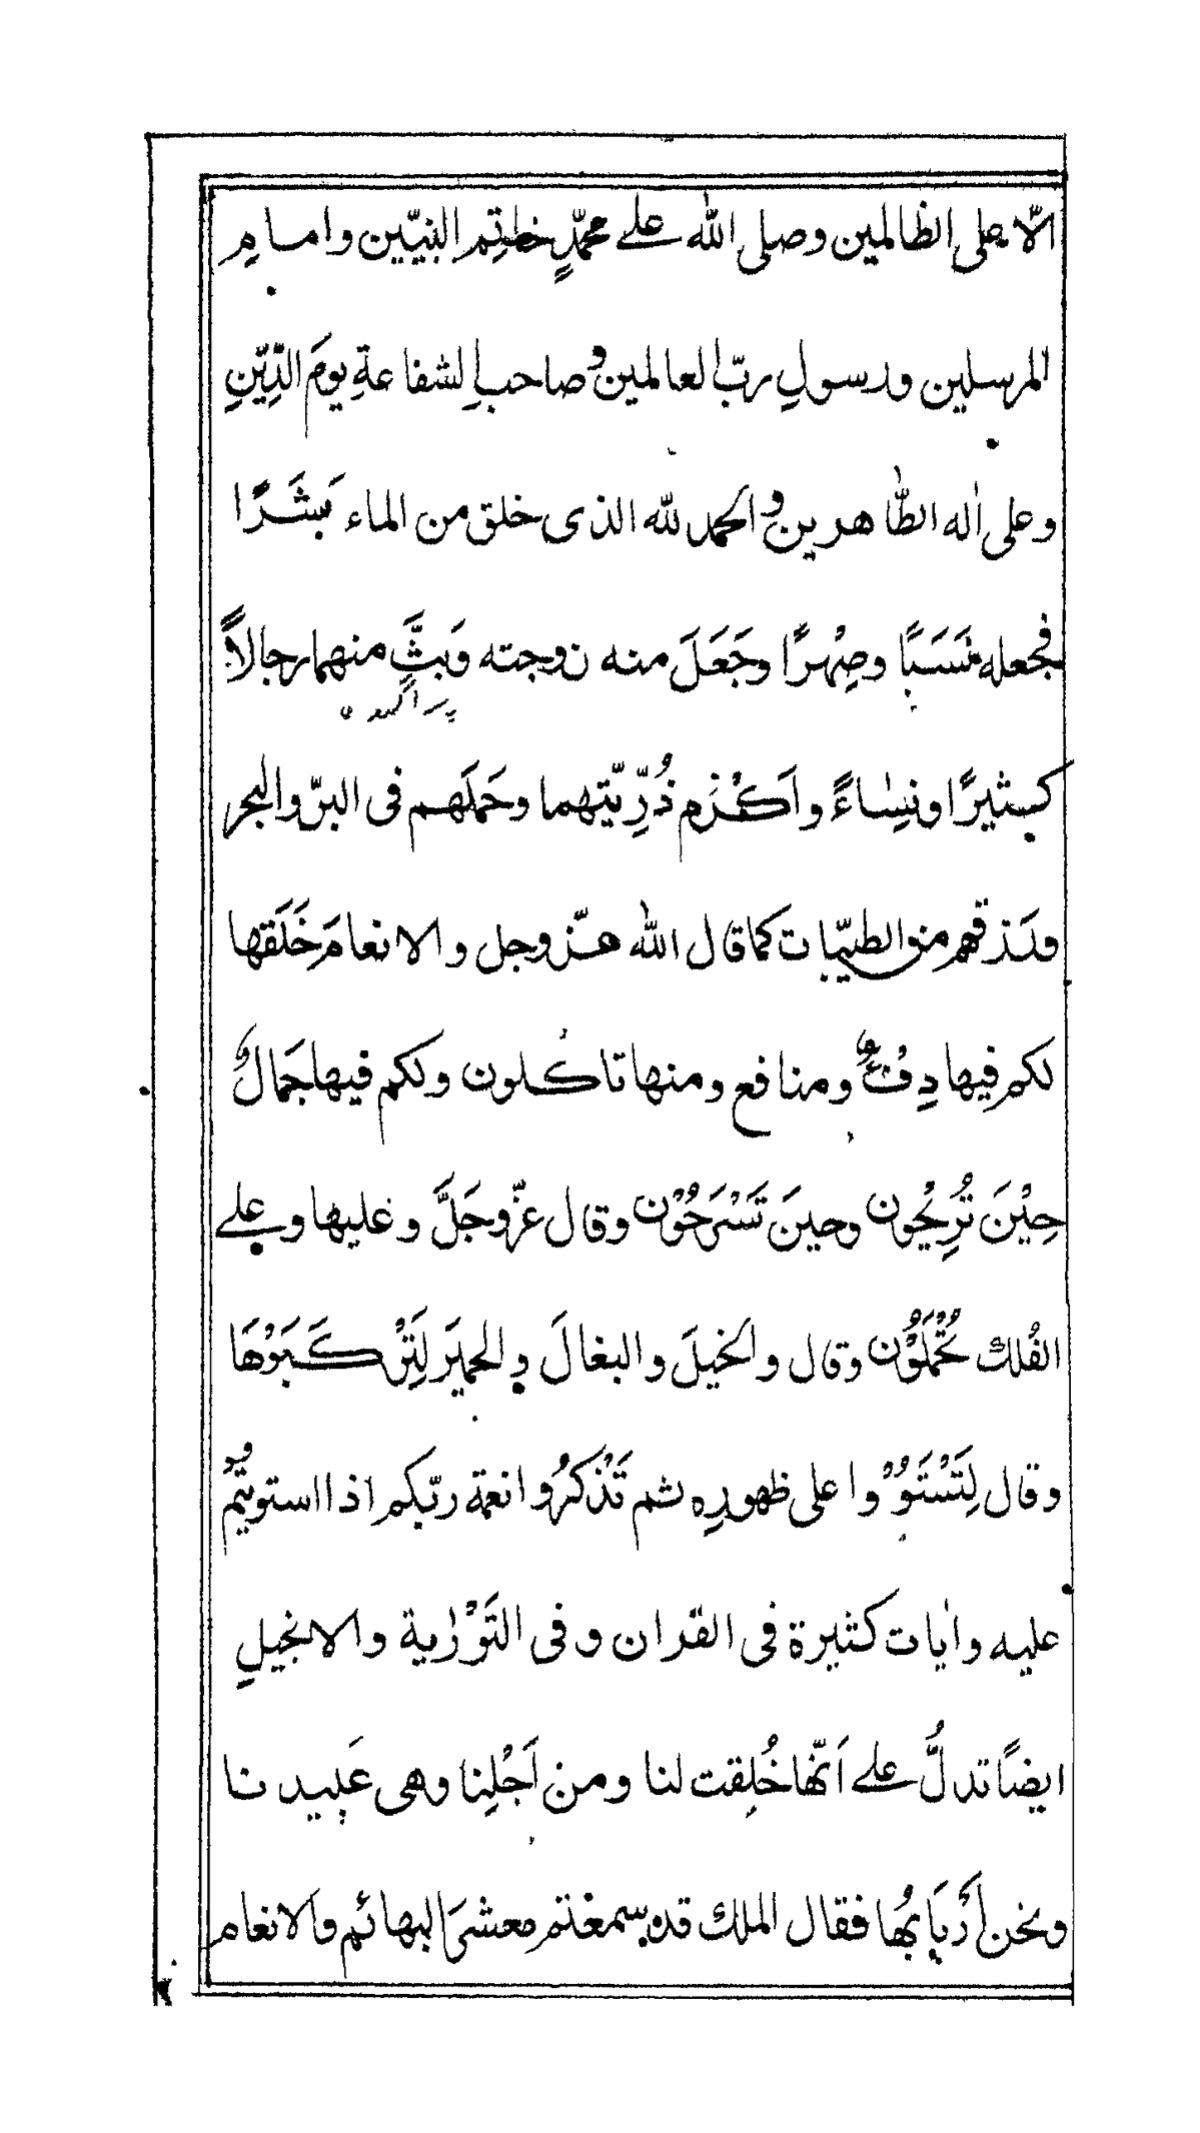 الّا على الظالمين وصلى الله على محمّدٍ خاتِم النبيّين وامامِ
المرسلين ورسولِ ربّ العالمين وصاحبِ الشفاعةِ يومَ الدِّيْنِ
وعلى اٰله الطّاهرين والحمد لله الذى خلق من الماء بَشَرًا
فجعله نَسَبًا وصِهْرًا وجَعَلَ منه زوجته وَبَثَّ منهما رجالاً
كثيرًا ونِسٰاءً واَكْرَم ذُرِّيّتهما وحَمَلَهم فى البرّ والبحر
ورَزقهم من الطيّبات كما قال الله عزّوجل والانعامَ خَلَقها
لكم فيها دِفْءٌ ومنافع ومنها تاكُلون ولكم فيها جَمالٌ
حِيْنَ تُرِيْحُون وحينَ تَسْرَحُوْن وقال عزّوجَلَّ وعليها وعلى
الفُلك تُحْمَلُوْن وقال والخيلَ والبغالَ والحميَر لِتَرْكَبَوْهَا
وقال لِتَسْتَوُوْا على ظهورِه ثم تَذْكرُوا نعمة ربّكم اذا استويتُم
عليه واٰيات كثيرة فى القرٰان وفى التَوْرٰية والانجيلِ
ايضًا تدلُّ على اَنّها خُلِقت لنا ومن اَجْلِنا وهى عَبِيدنا
ونحن اَرْبَابُها فقال الملك قد سمعتم معشرَ البهائم والانعام